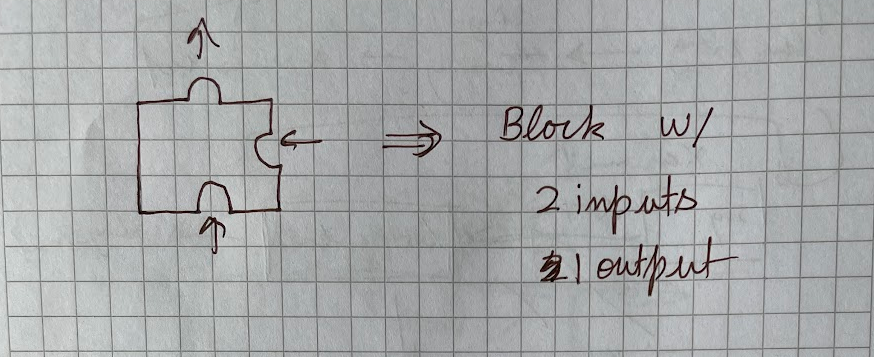 Block w/
2 inputs
1 output